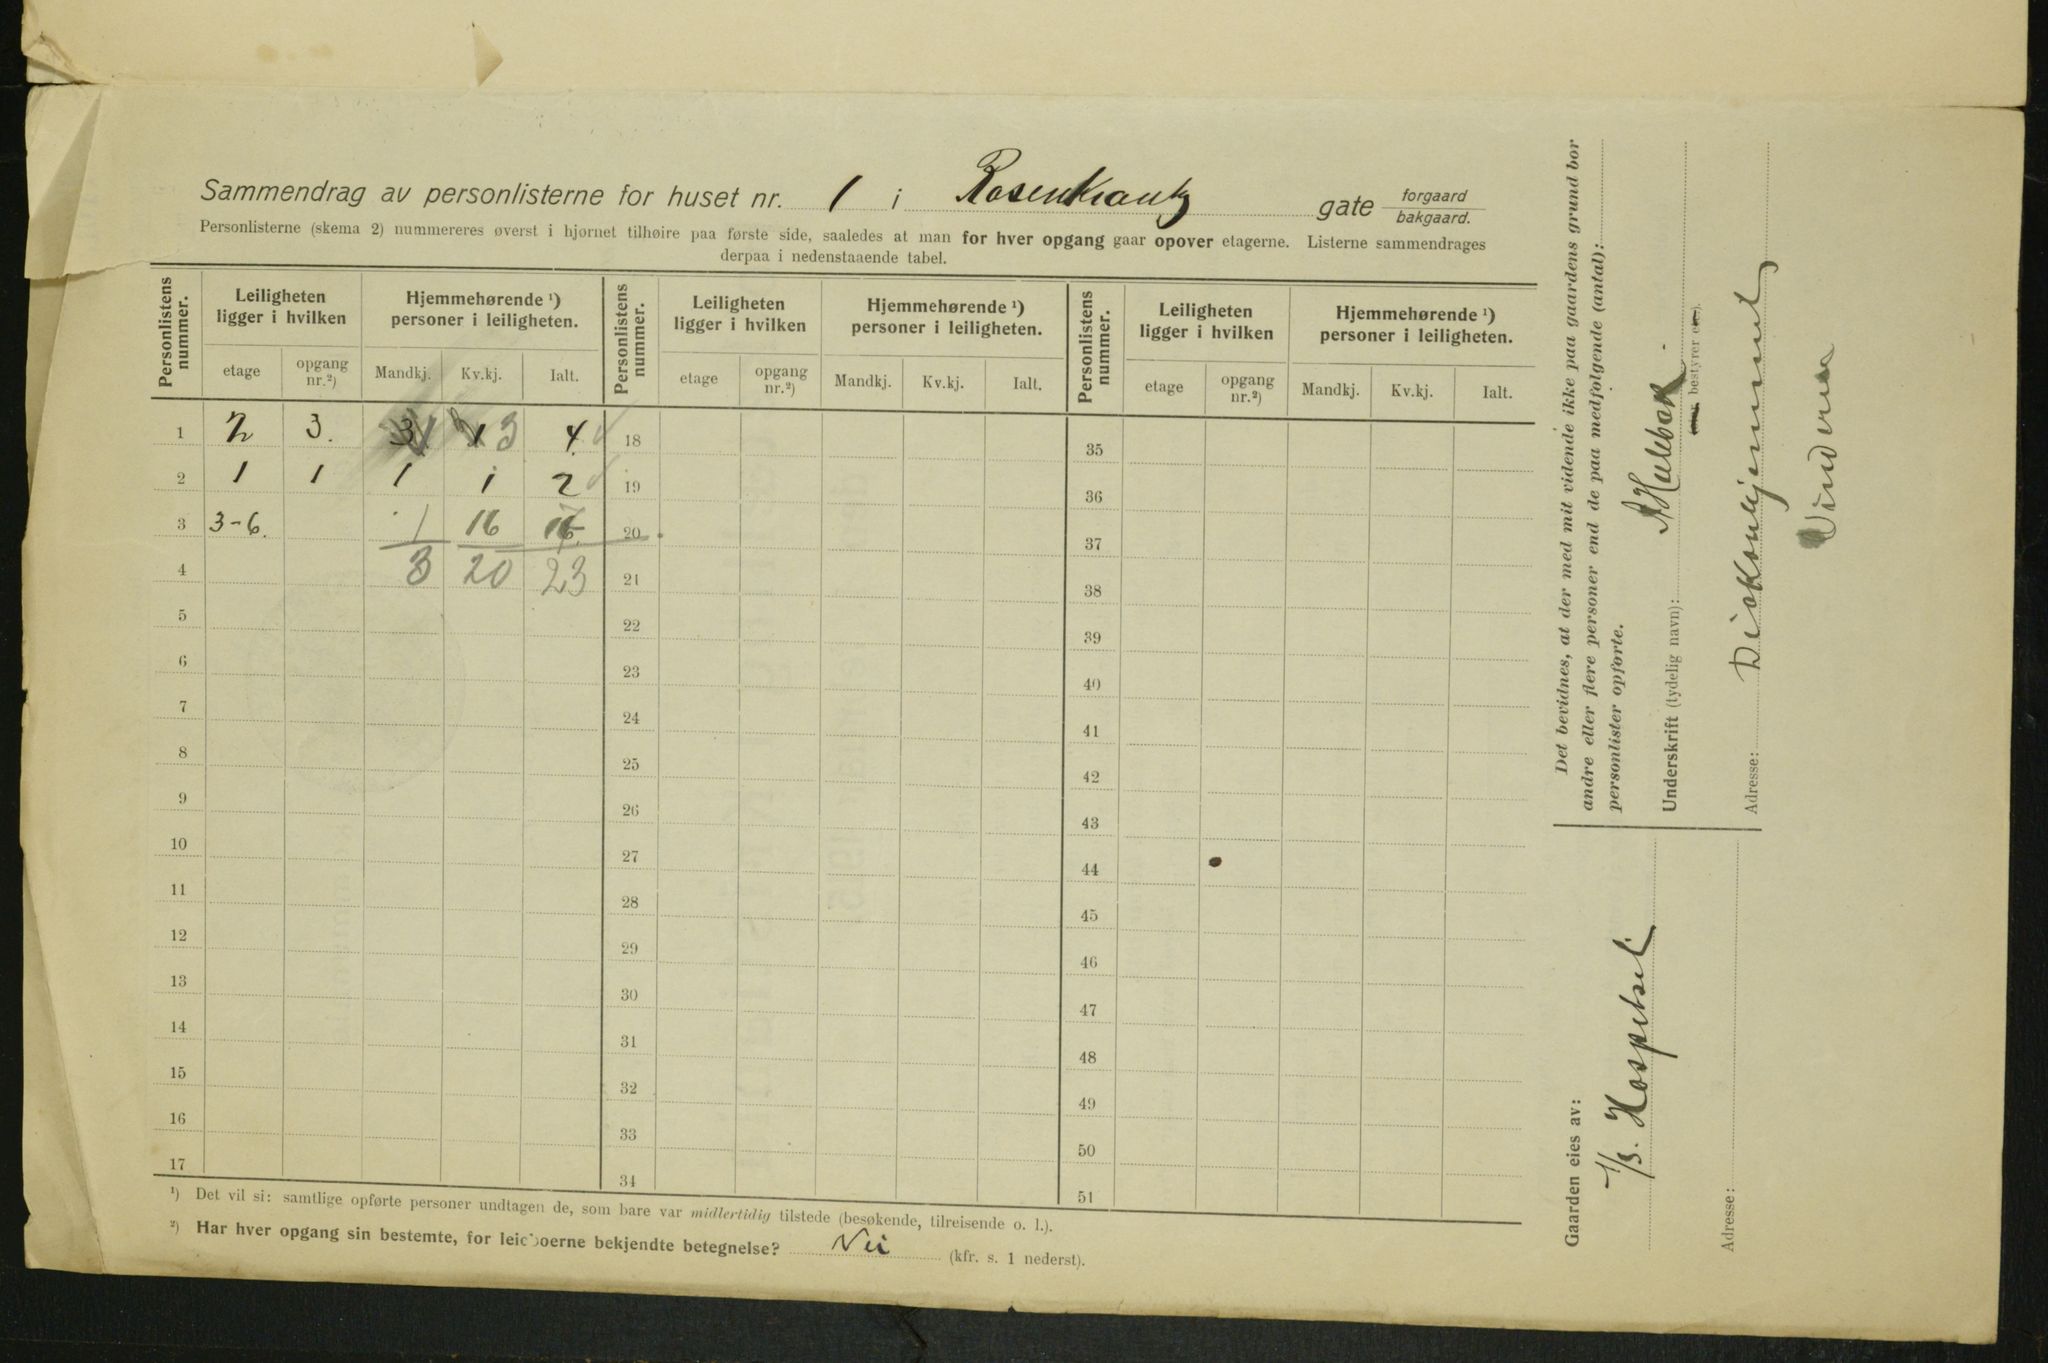 Sammendrag av personlisterne for huset nr. 1 i Rosenkrantz gate forgaard bakgaard.
Personlisterne (skema 2) nummereres øverst i hjørnet tilhøire paa første side, saaledes at man for hver opgang gaar opover etagerne. Listerne sammendrages
derpaa i nedenstaaende tabel.
Personlistens nummer. Leiligheten ligger i hvilken Hjemmehørende ¹) personer i leiligheten. Personlistens nummer. Leiligheten ligger i hvilken Hjemmehørende ¹) personer i leiligheten. Personlistens nummer. Leiligheten ligger i hvilken Hjemmehørende ¹) personer i leiligheten.
etage opgang nr.²) Mandkj. Kv.kj. Ialt. etage opgang nr.²) Mandkj. Kv.kj. Ialt. etage opgang nr.²) Mandkj. Kv.kj. Ialt.
1 2 3. 1 3 4 18 35
2 1 1 1 1 2 19 36
3 3-6. 1 16 17 20 37
4 3 20 23 21 38
5 22 39
6 23 40
7 24 41
8 25 42
9 26 43
10 27 44
11 28 45
12 29 46
13 30 47
14 31 48
15 32 49
16 33 50
17 34 51
¹) Det vil si: samtlige opførte personer undtagen de, som bare var midlertidig tilstede (besøkende, tilreisende o. l.).
²) Har hver opgang sin bestemte, for leieboerne bekjendte betegnelse? Nei (kfr. s. 1 nederst).
Det bevidnes, at der med mit vidende ikke paa gaardens grund bor
andre eller flere personer end de paa medfølgende (antal):
personlister opførte.
Underskrift (tydelig navn):
bestyrer
Adresse: Diakonhjemmet
Vinderen
Gaarden eies av:
Hospitset
Adresse: